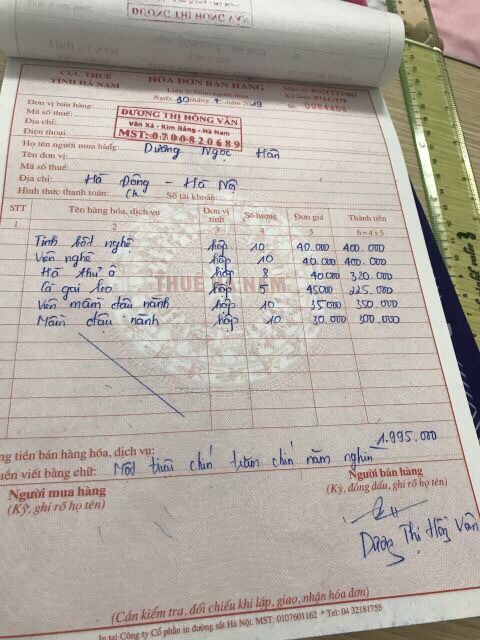 DƯƠNG THỊ HỒNG VÂN
CỤC THUẾ
TỈNH HÀ NAM
HÓA ĐƠN BÁN HÀNG
Liên 2: Giao người mua
Ngày 30 tháng 7 năm 2019
Số: 0084408
Đơn vị bán hàng:
Mã số thuế:
Địa chỉ:
Điện thoại:
DƯƠNG THỊ HỒNG VÂN
Văn Xá - Kim Bảng - Hà Nam
MST: 0700820689
Họ tên người mua hàng: Dương Ngọc Hân
Tên đơn vị:
Mã số thuế:
Địa chỉ: Hà Đông - Hà Nội
Hình thức thanh toán: Số tài khoản:
STT Tên hàng hóa, dịch vụ Đơn vị tính Số lượng Đơn giá Thành tiền
1 2 3 4 5 6=4x5
Tinh bột nghệ hộp 10 40.000 400.000
Viên nghệ hộp 10 40.000 400.000
Hà thủ ô hộp 8 40.000 320.000
Cà gai leo hộp 5 45000 225.000
Viên mầm đậu nành hộp 10 35.000 350.000
Mầm đậu nành hộp 10 30.000 300.000
THUẾ NAM
tiền bán hàng hóa, dịch vụ: 1.995.000
viết bằng chữ: Một triệu chín trăm chín năm nghìn
Người mua hàng Người bán hàng
(Ký, ghi rõ họ tên) (Ký, đóng dấu, ghi rõ họ tên)
Dương Thị Hồng Vân
(Cần kiểm tra, đối chiếu khi lập, giao, nhận hóa đơn)
In tại Công ty Cổ phần in đường sắt Hà Nội. MST: 0107601162 * Tel: 04 32181755